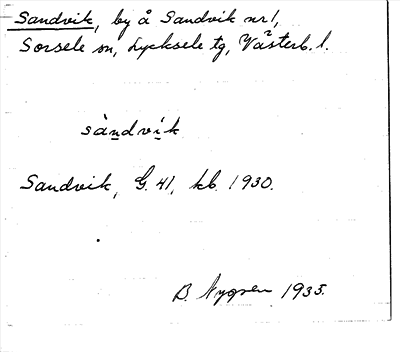 Sandvik, by å Sandvik nr 1,
Sorsele sn, Lycksele tg, Västerb. l.
sàndvík
Sandvik, G. 41, kb. 1930.
B. Nygren 1935.